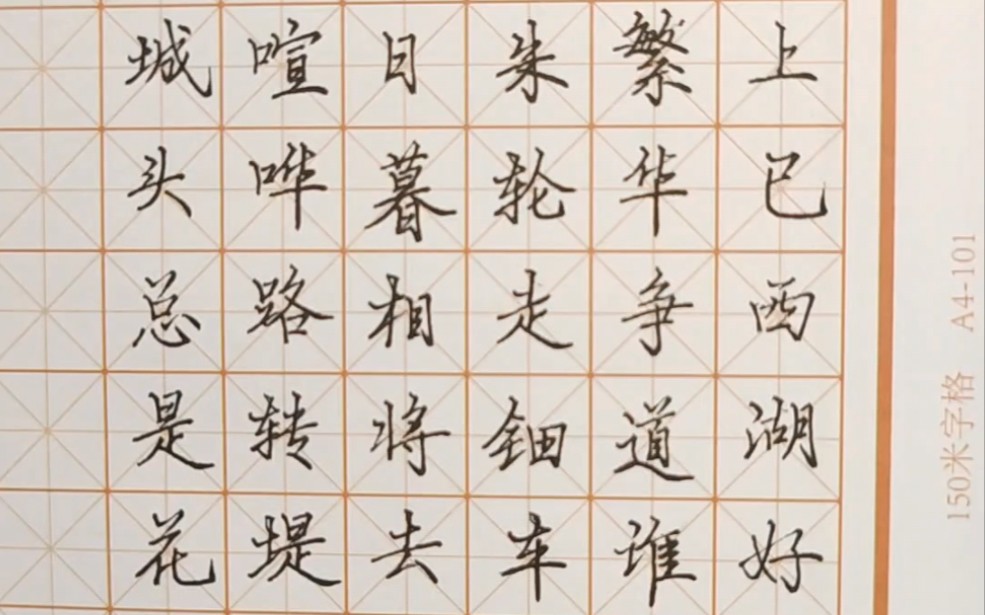 上巳西湖好
繁华争道谁
朱轮走钿车
日暮相将去
喧哗路转堤
城头总是花
150米字格 A4-101